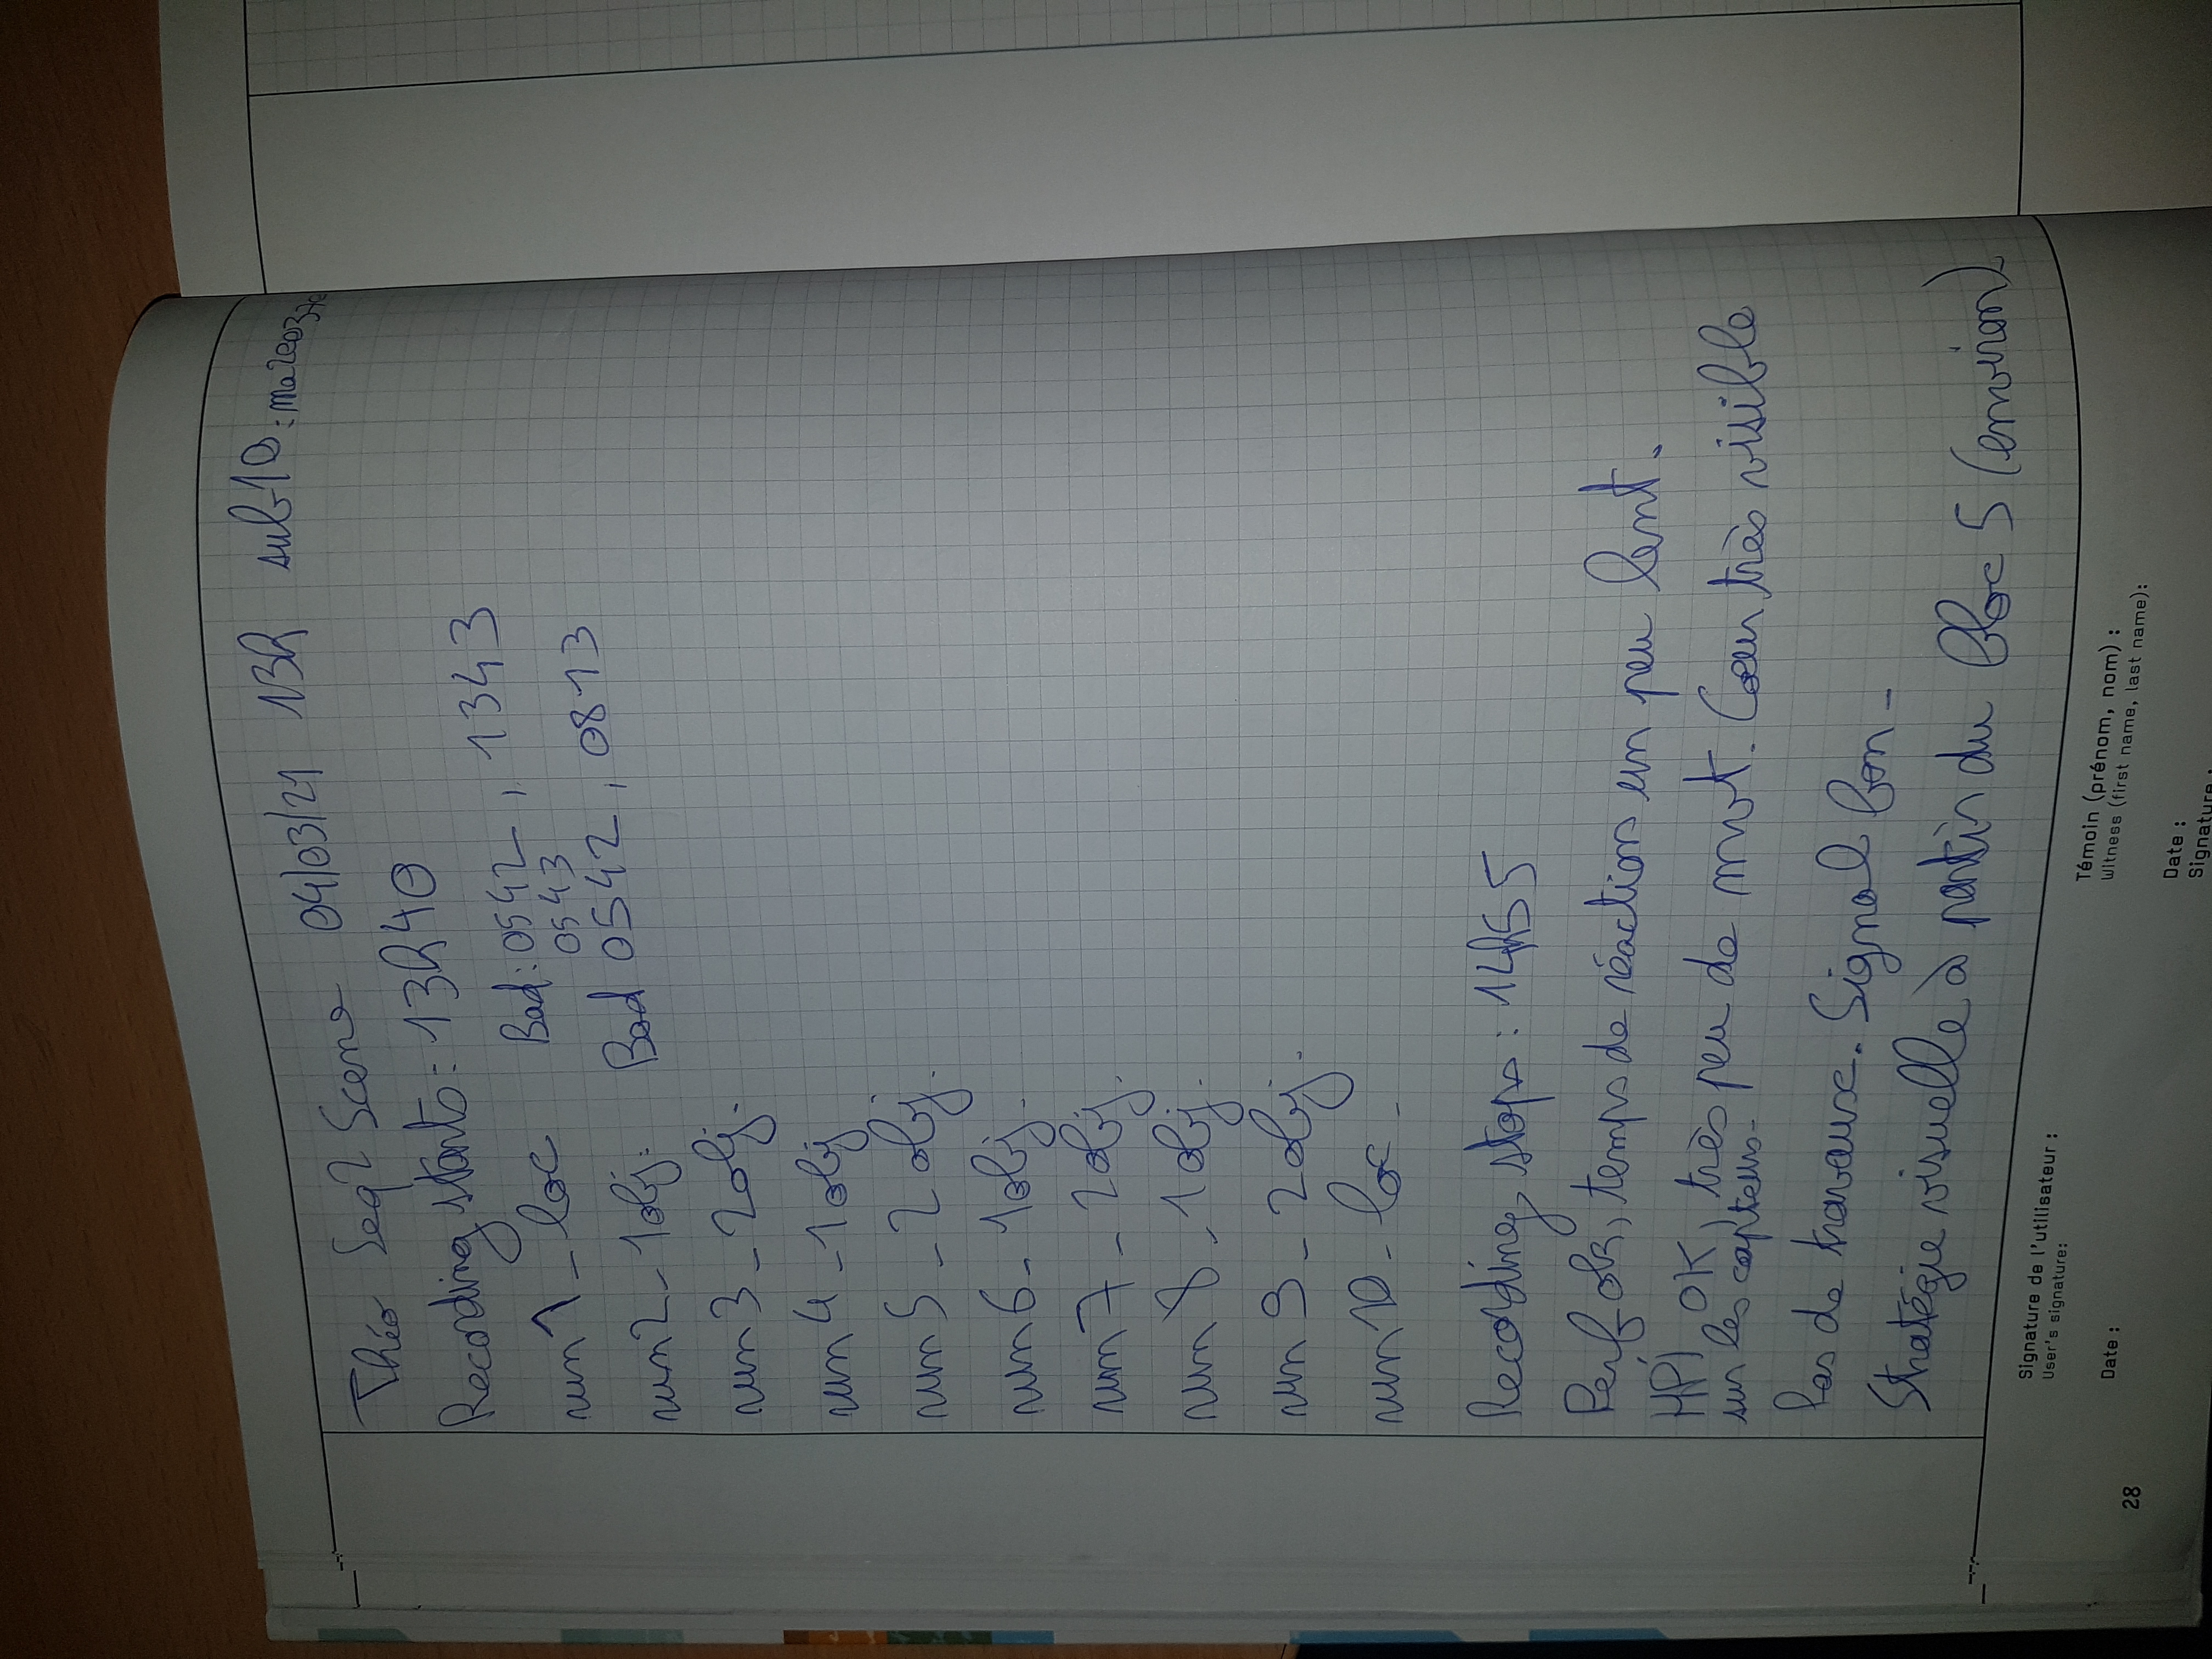 Théo Seq2Scene 04/03/21 13h sub10:
Recording starts: 13h40
run1_loc Bad: 0542, 1343
0543
run2_1obj: Bad 0542, 0813
run3_2obj.
run4_1obj
run5_2obj.
run6_1obj.
run7_2obj.
run8_1obj.
run9_2obj.
run10_loc_
Recording stops: 14h55
Perf ok, temps de réaction un peu lent.
HPI OK, très peu de mvt. Cœur très visible
sur les capteurs.
Pas de travaux. Signal bon_
Stratégie visuelle à partir du bloc 5 (environ)
Signature de l'utilisateur :
User's signature:
Témoin (prénom, nom) :
Witness (first name, last name):
Date :
28
Date :
Signature :